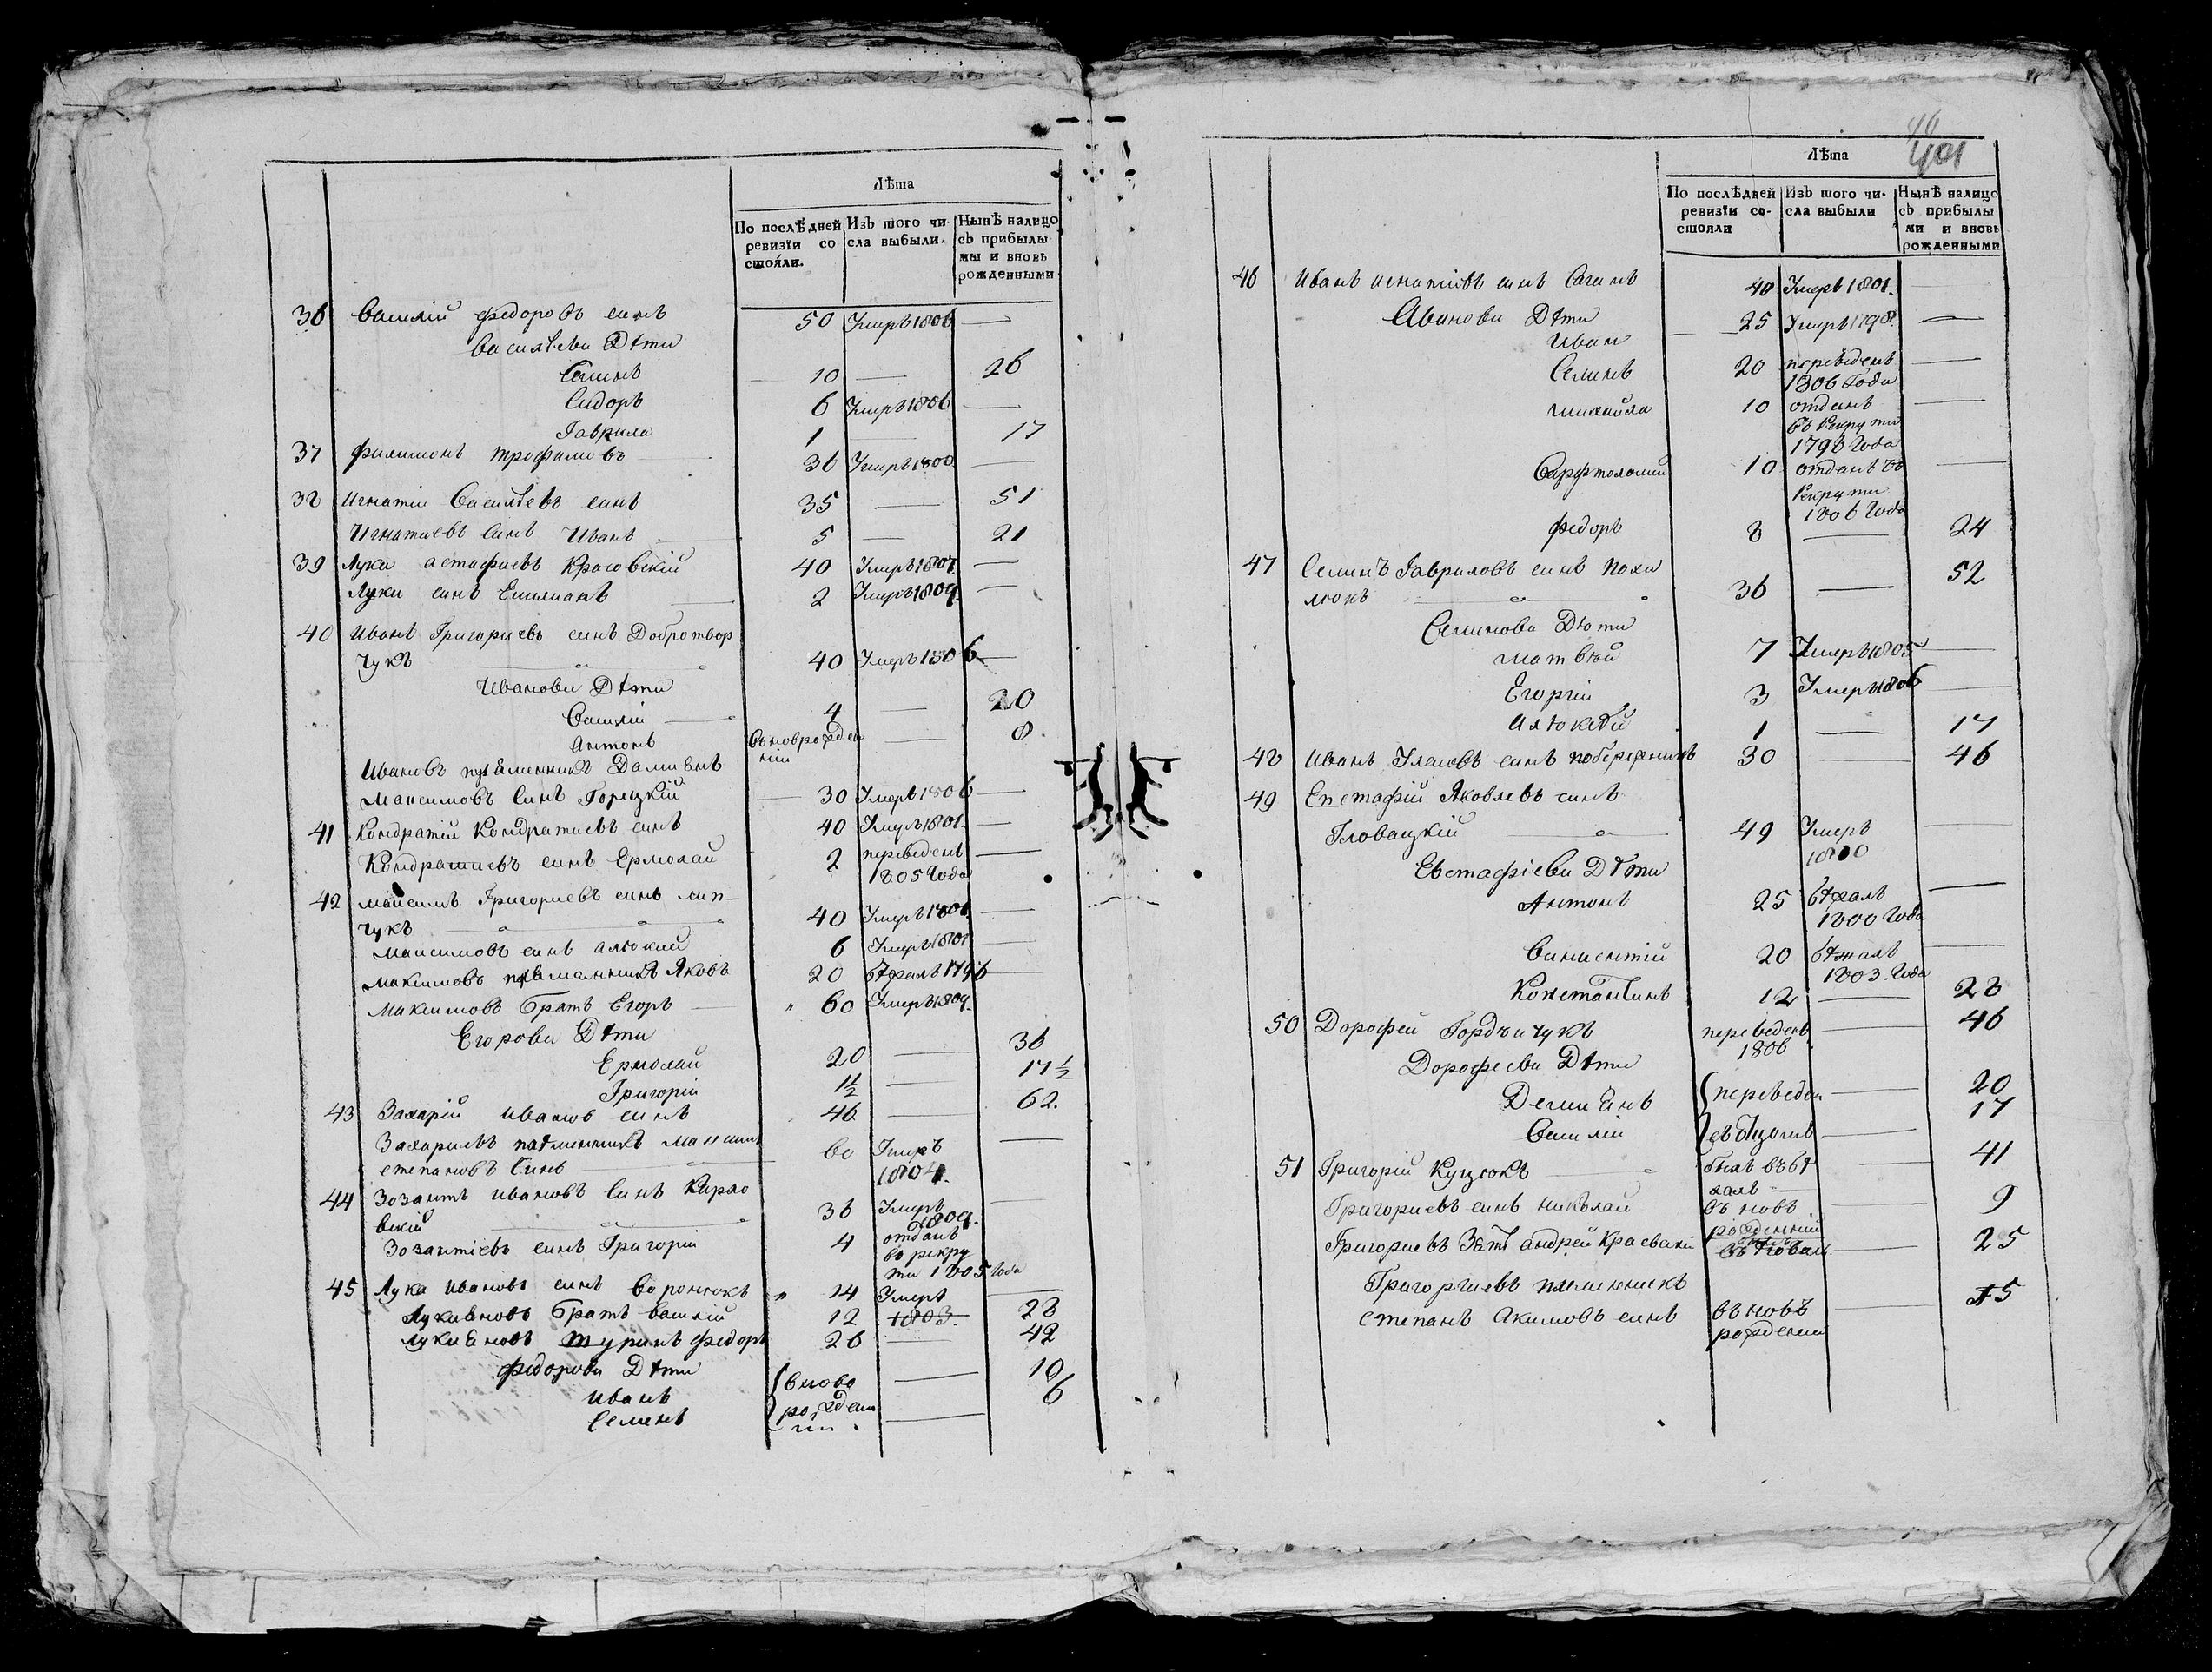 Лѣта
По послѣдней ревизіи состояли.
Изъ того числа выбыли.
Нынѣ налицо съ прибылымы и вновь рожденными
36 Василій федоровъ синъ 50 Умеръ 1806 —
Василѣеви Дѣти
Семинъ 10 — 26
Сидоръ 6 Умеръ 1806 —
Гаврила 1 — 17
37 филимонъ трофимовъ 36 Умеръ 1800 —
38 Игнатіи Василѣевъ синъ 35 — 51
Игнатиевъ Синъ Иванъ 5 — 21
39 Лука астафиевъ Красовскій 40 Умеръ 1807. —
Луки синъ Емилианъ 2 Умеръ 1809. —
40 Иванъ Григориевъ синъ Добротвор
чукъ 40 Умеръ 1806 —
Иванови Дѣти
Василій 4 — 20
Антонъ Вьноврожденніи — 8
Ивановъ племенникъ Дамиенъ
Максимовъ Синъ Горецкій 30 Умеръ 1806 —
41 Кондратій Кондратиевъ синъ 40 Умеръ 1801. —
Кондратиевъ синъ Ермолаи 2 переведенъ 1805 Года —
42 максимъ Григориевъ синъ лип-
чукъ 40 Умеръ 1801. —
максимовъ синъ алюкзий 6 Умеръ 1801 —
максимовъ племенникъ Яковъ 20 бѣжалъ 1796 —
максимовъ братъ Егоръ 60 Умеръ 1809. —
Егорови Дѣти
Ермолаи 20 — 36
Григоріи 1½ — 17½
43 Захарій ивановъ синъ 46 — 62.
Захариевъ племенникъ максимъ
степановъ Синъ 60 Умеръ 1804. —
44 Зозантъ ивановъ Синъ Карло
вскій 36 Умеръ 1809. —
Зозантіевъ синъ Григоріи 4 отданъ во рекрути 1805 Года
45 Лука ивановъ синъ воронюкъ 14 Умеръ 1803. —
Лукиановъ братъ василій 12 — 28
Лукиановъ шуринъ федоръ 26 — 42
федорови Дѣти
иванъ вново — 10
Семенъ рожденніи — 6
401
Лѣта
По послѣдней ревизіи состояли
Изъ того числа выбыли
Нынѣ налицо съ прибылыми и вновь рожденными
46 Иванъ игнатиевъ синъ Саганъ 40 Умеръ 1801. —
Иванови Дѣти 25 Умеръ 1798. —
Иван
Семинъ 20 переведенъ 1806 Года —
михайла 10 отданъ въ Рекрути 1798 Года —
Варфтоломей 10 отданъ въ Рекрути 1806 Года —
федоръ 8 — 24
47 Семинъ Гавриловъ синъ Похи
люкъ 36 — 52
Семинови Дюти
матвюй 7 Умеръ 1805 —
Егоргіи 3 Умеръ 1806 —
Алюкзѣй 1 — 17
48 Иванъ Уласовъ синъ побережникъ 30 — 46
49 Епстафій Яковлевъ синъ
Гловацкій 49 Умеръ 1800 —
Евстафіеви Дѣти
Антонъ 25 бѣжалъ 1800 Года —
Викиентій 20 бѣжалъ 1803. Года —
Константинъ 12 — 28
50 Дорофеи Гордѣичукъ переведенъ 1806 — 46
Дорофееви Дѣти
Демиѣнъ переведен — 20
Василіи съ отцомъ — 17
51 Григорій Куцюкъ былъ въ бѣхалъ — 41
Григориевъ синъ николаи въ новъ рожденній — 9
Григориевъ Зать андрей Краевскій — 25
Григоргиевъ племѣнникъ
степанъ Акимовъ синъ въ новъ рожденніи — 15